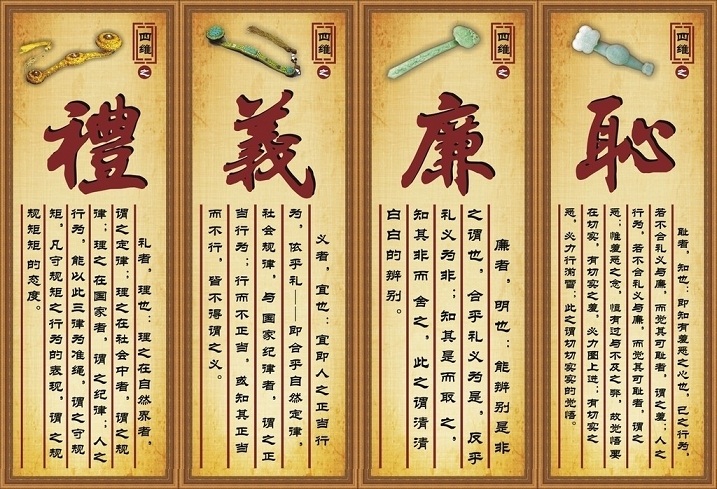 四维
之
禮
礼者，理也：理之在自然界者，
谓之定律；理之在社会中者，谓之规
律；理之在国家者，谓之纪律；人之
行为，能以此三律为准绳，谓之守规
矩，凡守规矩之行为的表现，谓之规
规矩矩的态度。
四维
之
義
义者，宜也：宜即人之正当行
为，依乎礼——即合乎自然定律，
社会规律，与国家纪律者，谓之正
当行为；行而不正当，或知其正当
而不行，皆不得谓之义。
四维
之
廉
廉者，明也：能辨别是非
之谓也，合乎礼义为是，反乎
礼义为非；知其是而取之，
知其非而舍之，此之谓清清
白白的辨别。
四维
之
恥
耻者，知也：即知有羞恶之心也，己之行为，
若不合礼义与廉，而觉其可耻者，谓之羞；人之
行为，若不合礼义与廉，而觉其可耻者，谓之
恶；惟羞恶之念，恒有过与不及之弊，故觉悟要
在切实，有切实之羞，必力图上进；有切实之
恶，必力行湔雪；此之谓切切实实的觉悟。